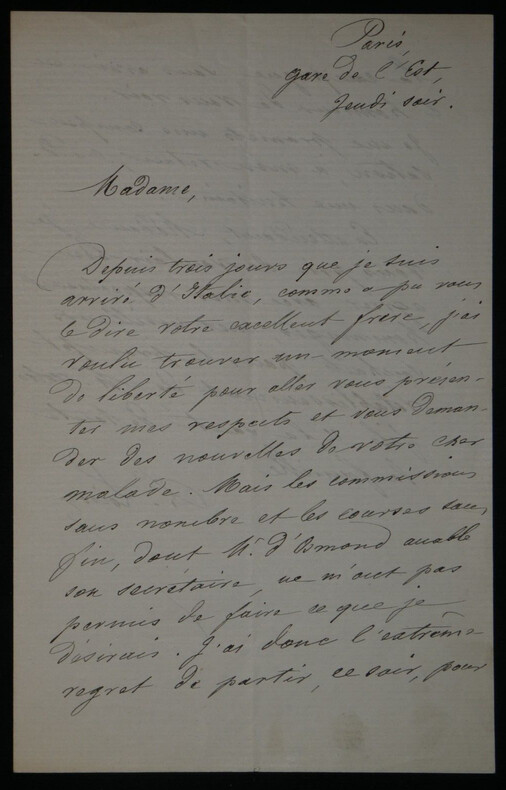 Paris,
gare de l'Est,
Jeudi soir.
Madame,
Depuis trois jours que je suis
arrivé d'Italie, comme a pu vous
le dire votre excellent frère, j'ai
voulu trouver un moment
de liberté pour aller vous présen-
ter mes respects et vous deman-
der des nouvelles de votre cher
malade. Mais les commissions
sans nombre et les courses sans
fin, dont Mr. d'Osmond accable
son secrétaire, ne m'ont pas
permis de faire ce que je
désirais. J'ai donc l'extrême
regret de partir, ce soir, pour